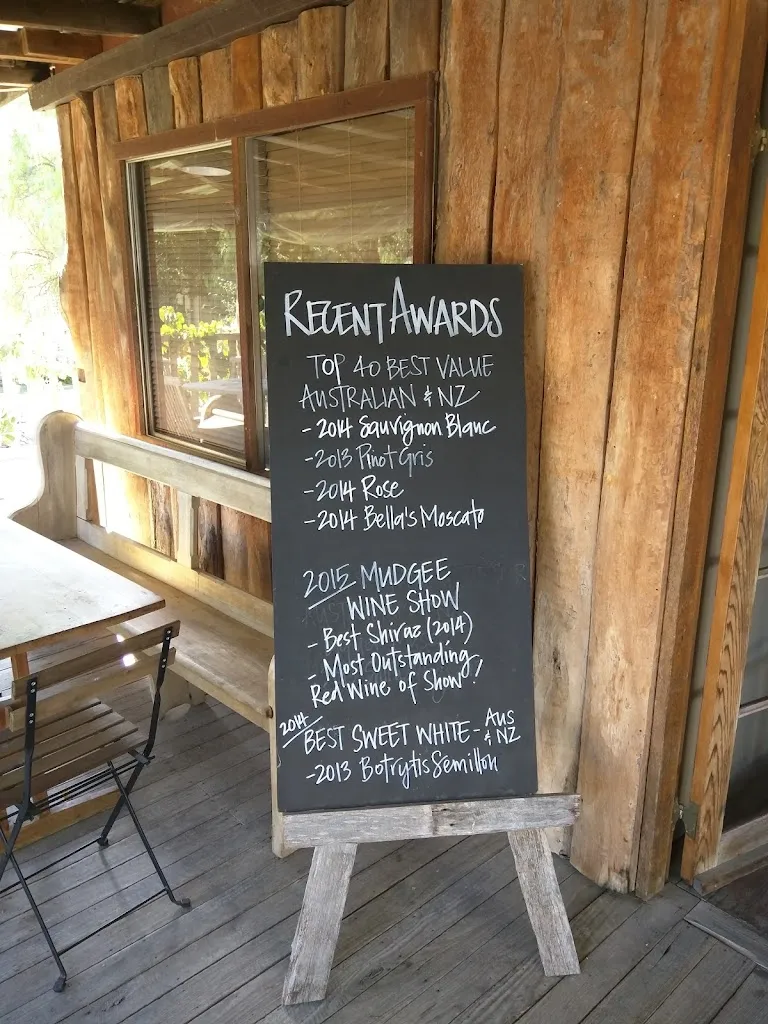 RECENT AWARDS
TOP 40 BEST VALUE
AUSTRALIAN & NZ
- 2014 Sauvignon Blanc
- 2013 Pinot Gris
- 2014 Rose
- 2014 Bella's Moscato
2015 MUDGEE
WINE SHOW
- Best Shiraz (2014)
- Most Outstanding
Red Wine of Show!
2014
BEST SWEET WHITE - AUS & NZ
- 2013 Botrytis Semillon